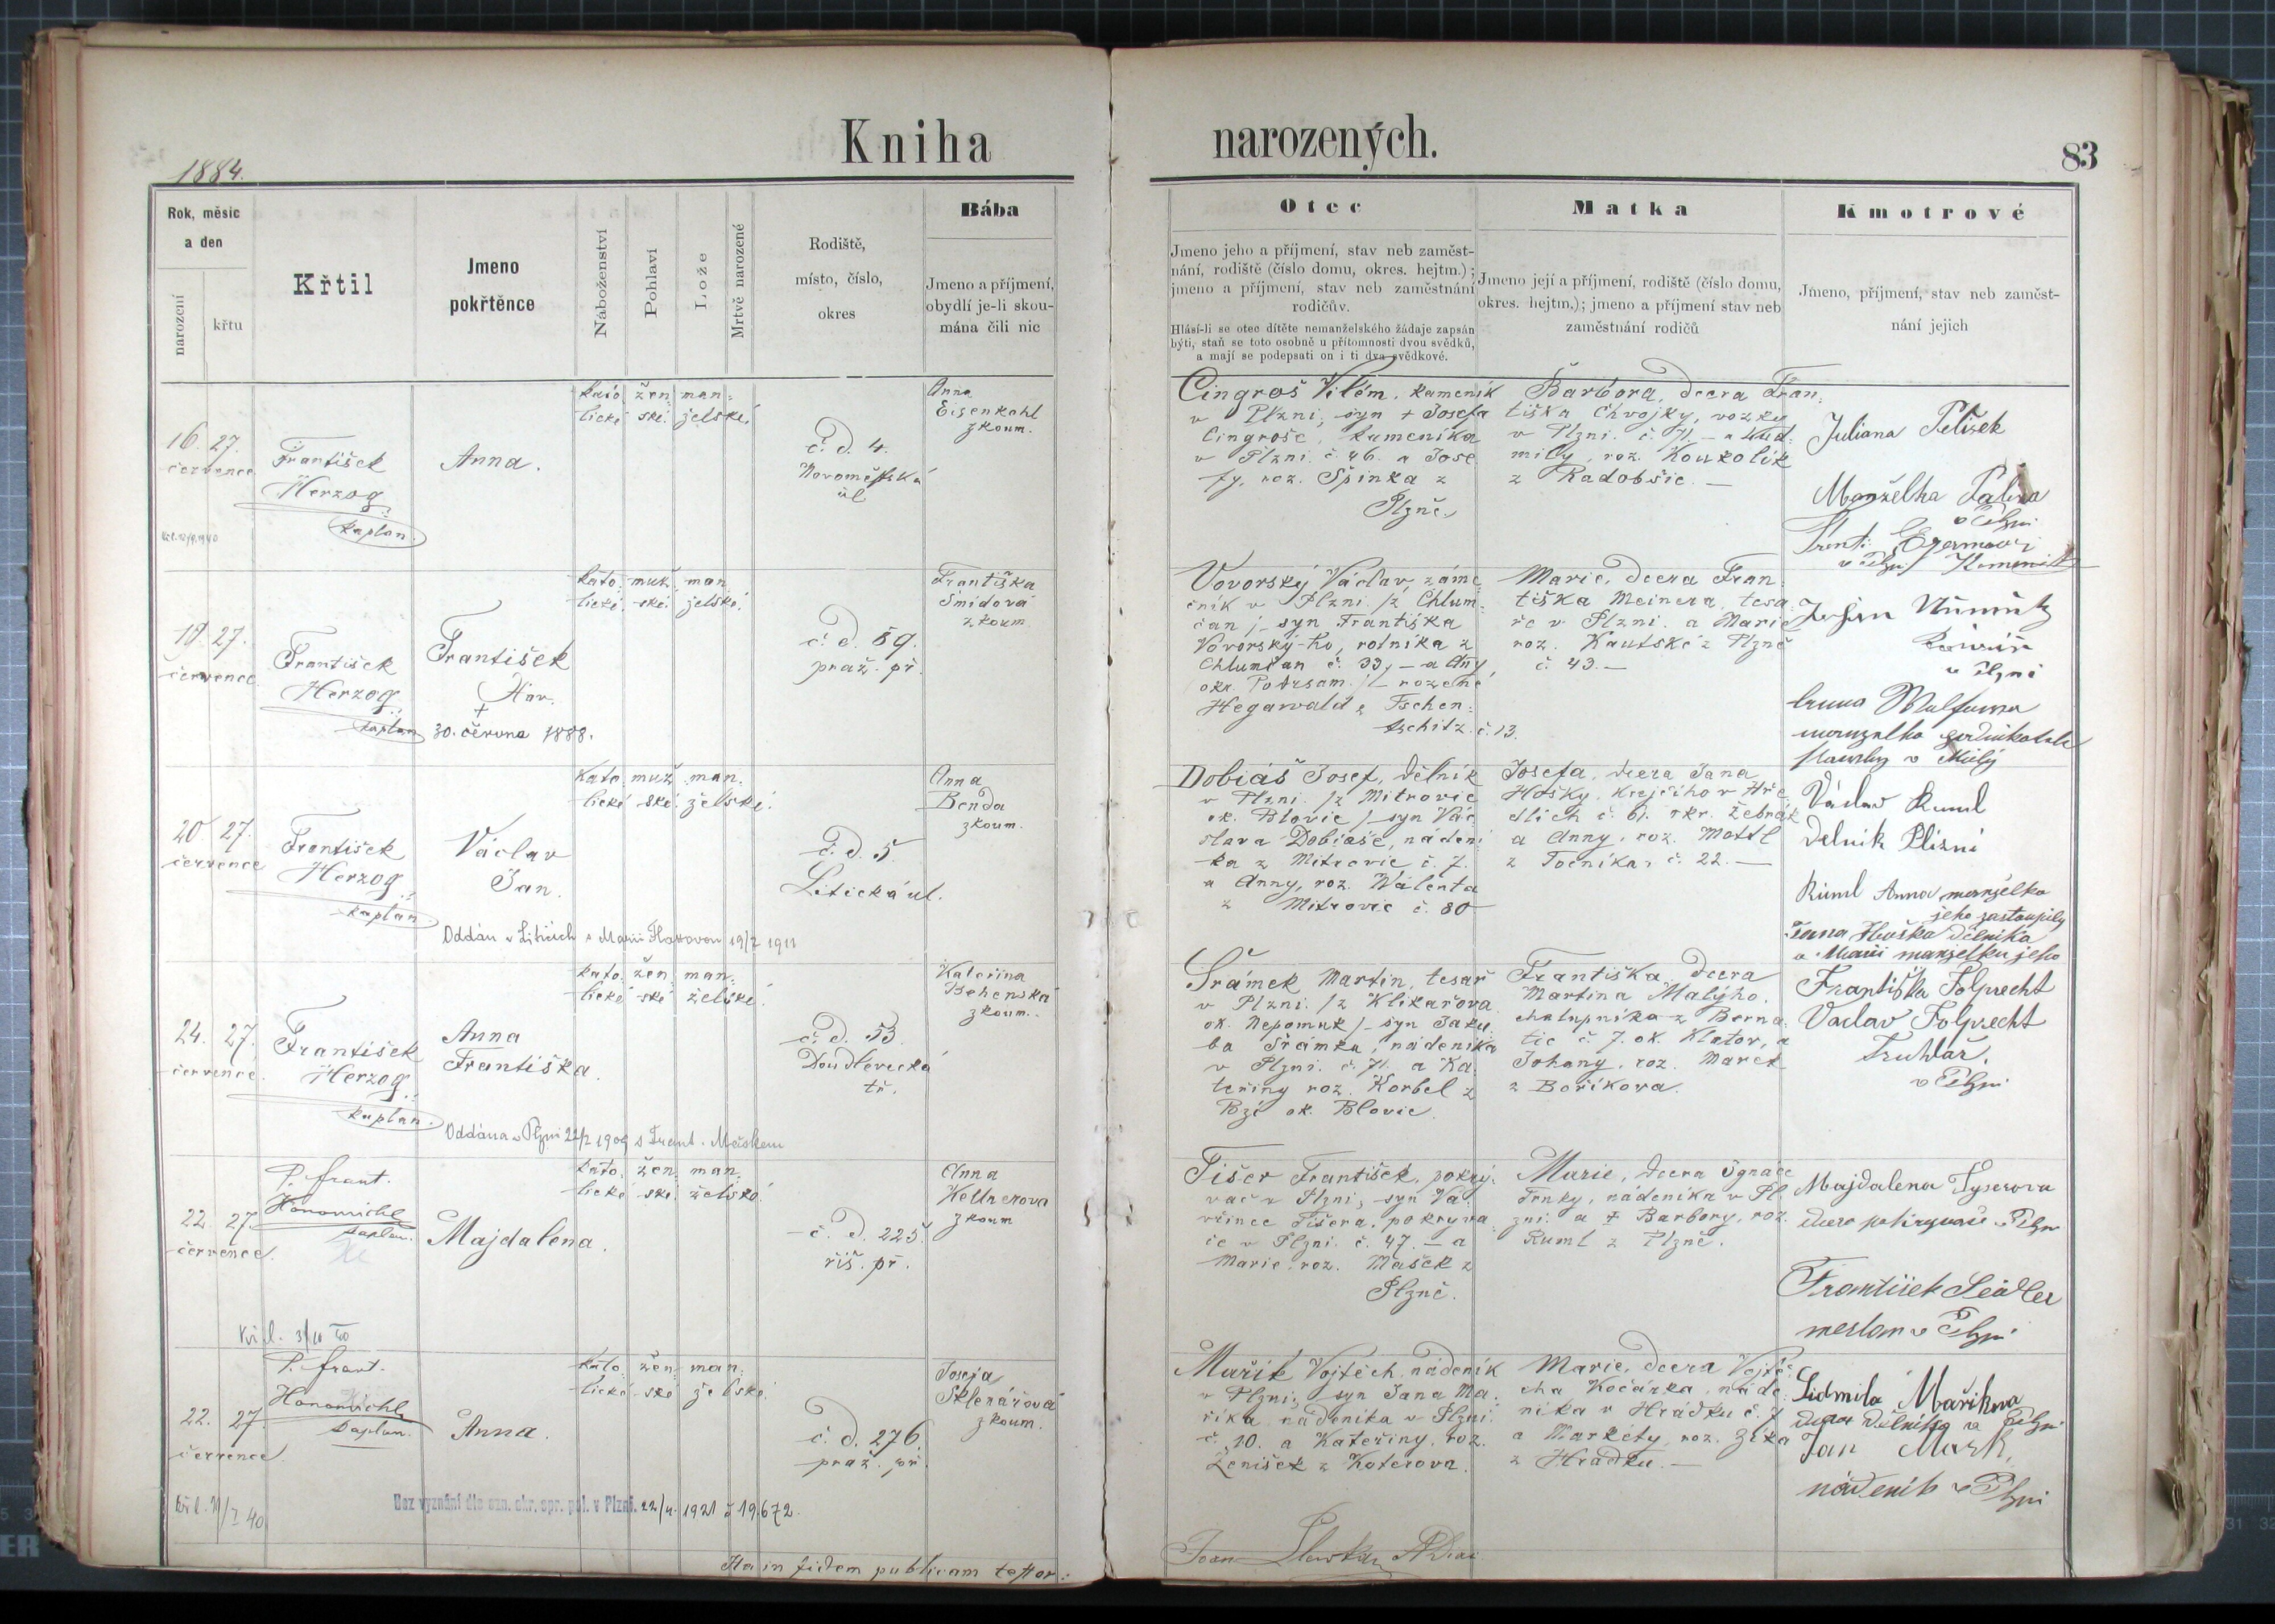 Kniha
narozených.
83
1884.
Rok, měsíc
a den
narození
křtu
Křtil
Jmeno
pokřtěnce
Náboženství
Pohlaví
Lože
Mrtvě narozené
Rodiště,
místo, číslo,
okres
Bába
Jmeno a příjmení,
obydlí je-li skou-
mána čili nic
Otec
Jmeno jeho a příjmení, stav neb zaměst-
nání, rodiště (číslo domu, okres. hejtm.);
jmeno a příjmení, stav neb zaměstnání
rodičův.
Hlásí-li se otec dítěte nemanželského žádaje zapsán
býti, staň se toto osobně u přítomnosti dvou svědků,
a mají se podepsati on i ti dva svědkové.
Matka
Jmeno její a příjmení, rodiště (číslo domu,
okres. hejtm.); jmeno a příjmení stav neb
zaměstnání rodičů
Kmotrové
Jmeno, příjmení, stav neb zaměst-
nání jejich
16. 27.
července
František
Herzog
kaplan.
Anna.
kato žen man:
lické ské. želské.
č. d. 4.
Novoměstská
ul
Anna
Eisenkohl
zkoum.
Cingroš Vilém, kameník
v Plzni, syn + Josefa
Cingroše, kameníka
v Plzni. č. 46. a Jose
fy, roz. Špinka z
Plzně.
Barbora, dcera Fran:
tiška Chvojky, vozky
v Plzni. č. 71. — a Lud:
mily, roz. Koukolík
z Radobšic. —
Juliana Pelíšek
Manželka
v Plzni
Frant:
v Plzni Kameník
27.
července
František
Herzog
kaplan
František
+
30. června 1888.
kato. muž. man.
lické. ské. želské.
č. d. 89.
praž. př.
Františka
Šmídová
zkoum.
Vovorský Václav, záme
čník v Plzni /z Chlum:
čan/, syn Františka
Vovorský-ho, rolníka z
Chlumčan č. 33, — a Any
okr. — rozené
Hegawald z Tschen:
tschitz. č. 13.
Marie, dcera Fran:
tiška Meinera, tesa
ře v Plzni. a Marie
roz. Kautské z Plzně
č. 43. —
v Plzni
v
20. 27.
července
František
Herzog
kaplan.
Václav
Jan.
Oddán v Liticích s Marií 1911
kato. muž. man.
lické ské. želské.
č. d. 5
Litická ul.
Anna
Benda
zkoum.
Dobiáš Josef, dělník
v Plzni. /z Mitrovic
ok. Blovic/ syn Vác
slava Dobiáše, nádení
ka z Mitrovic č. 7.
a Anny, roz. Walenta
z Mitrovic č. 80
Josefa, dcera Jana
Hošky, krejčího v Hře
dlích č. 61. okr. Žebrák
a Anny, roz. Mottl
z Točníka, č. 22. —
Václav Ruml
Delník Plzni
Ruml Anna manželka
jeho zastoupily
dělníka
a Marii manželku jeho
24. 27.
července.
František
Herzog
kaplan.
Anna
Františka.
Oddána v Plzni 1909 s Frant.
kato. žen. man.
lické ské želské.
č. d. 53.
Doudlevecká
tř.
Kateřina
Behenská
zkoum.
Šrámek Martin, tesař
v Plzni. /z Klikařova
ok. Nepomuk/ syn Jaku
ba Šrámka, nádeníka
v Plzni. č. 71. a Ka
teřiny roz. Korbel z
Bzí ok. Blovic.
Františka dcera
Martina Malýho.
chalupníka z Berna:
tic č. 7. ok. Klatov, a
Johany, roz. Marek
z Boříkova.
Františka Folprecht
Vaclav Folprecht
Truhlář,
v Plzni
22. 27.
července.
P. frant.
Honomichl
kaplan.
Majdalena.
kato. žen. man.
lické ské. želské.
č. d. 225.
říš. př.
Anna
Kellnerova
zkoum
Tišer František, pokrý:
vač v Plzni, syn Va
vřince Tišera, pokrýva
če v Plzni. č. 47. — a
Marie, roz. Mašek z
Plzně.
Marie, dcera Ignáce
Trnky, nádeníka v Pl
zni. a + Barbory, roz.
Ruml z Plzně.
Majdalena Tyserova
dcera pokrývače v Plzni
František Seidler
v Plzni
22. 27.
července.
P. frant.
Honomichl
kaplan.
Anna.
kato žen man.
lické ské želské.
č. d. 276.
praž. př.
Josefa
Sklenářová
zkoum.
Mařík Vojtěch, nádeník
v Plzni, syn Jana Ma:
říka, nádeníka v Plzni.
č. 10. a Kateřiny, roz.
Ženíšek z Koterova.
Marie, dcera Vojtě:
cha Kočárka, náde
níka v Hrádku č. 7
a Markéty, roz. Zíka
z Hrádku. —
Lidmila Maříkova
dcera dělníka v Plzni
Jan
nádeník v Plzni
Bez vyznání dle ozn. okr. spr. pol. v Plzni. 22/4. 1921 č 19.672.
Ita in fidem publicam testor: